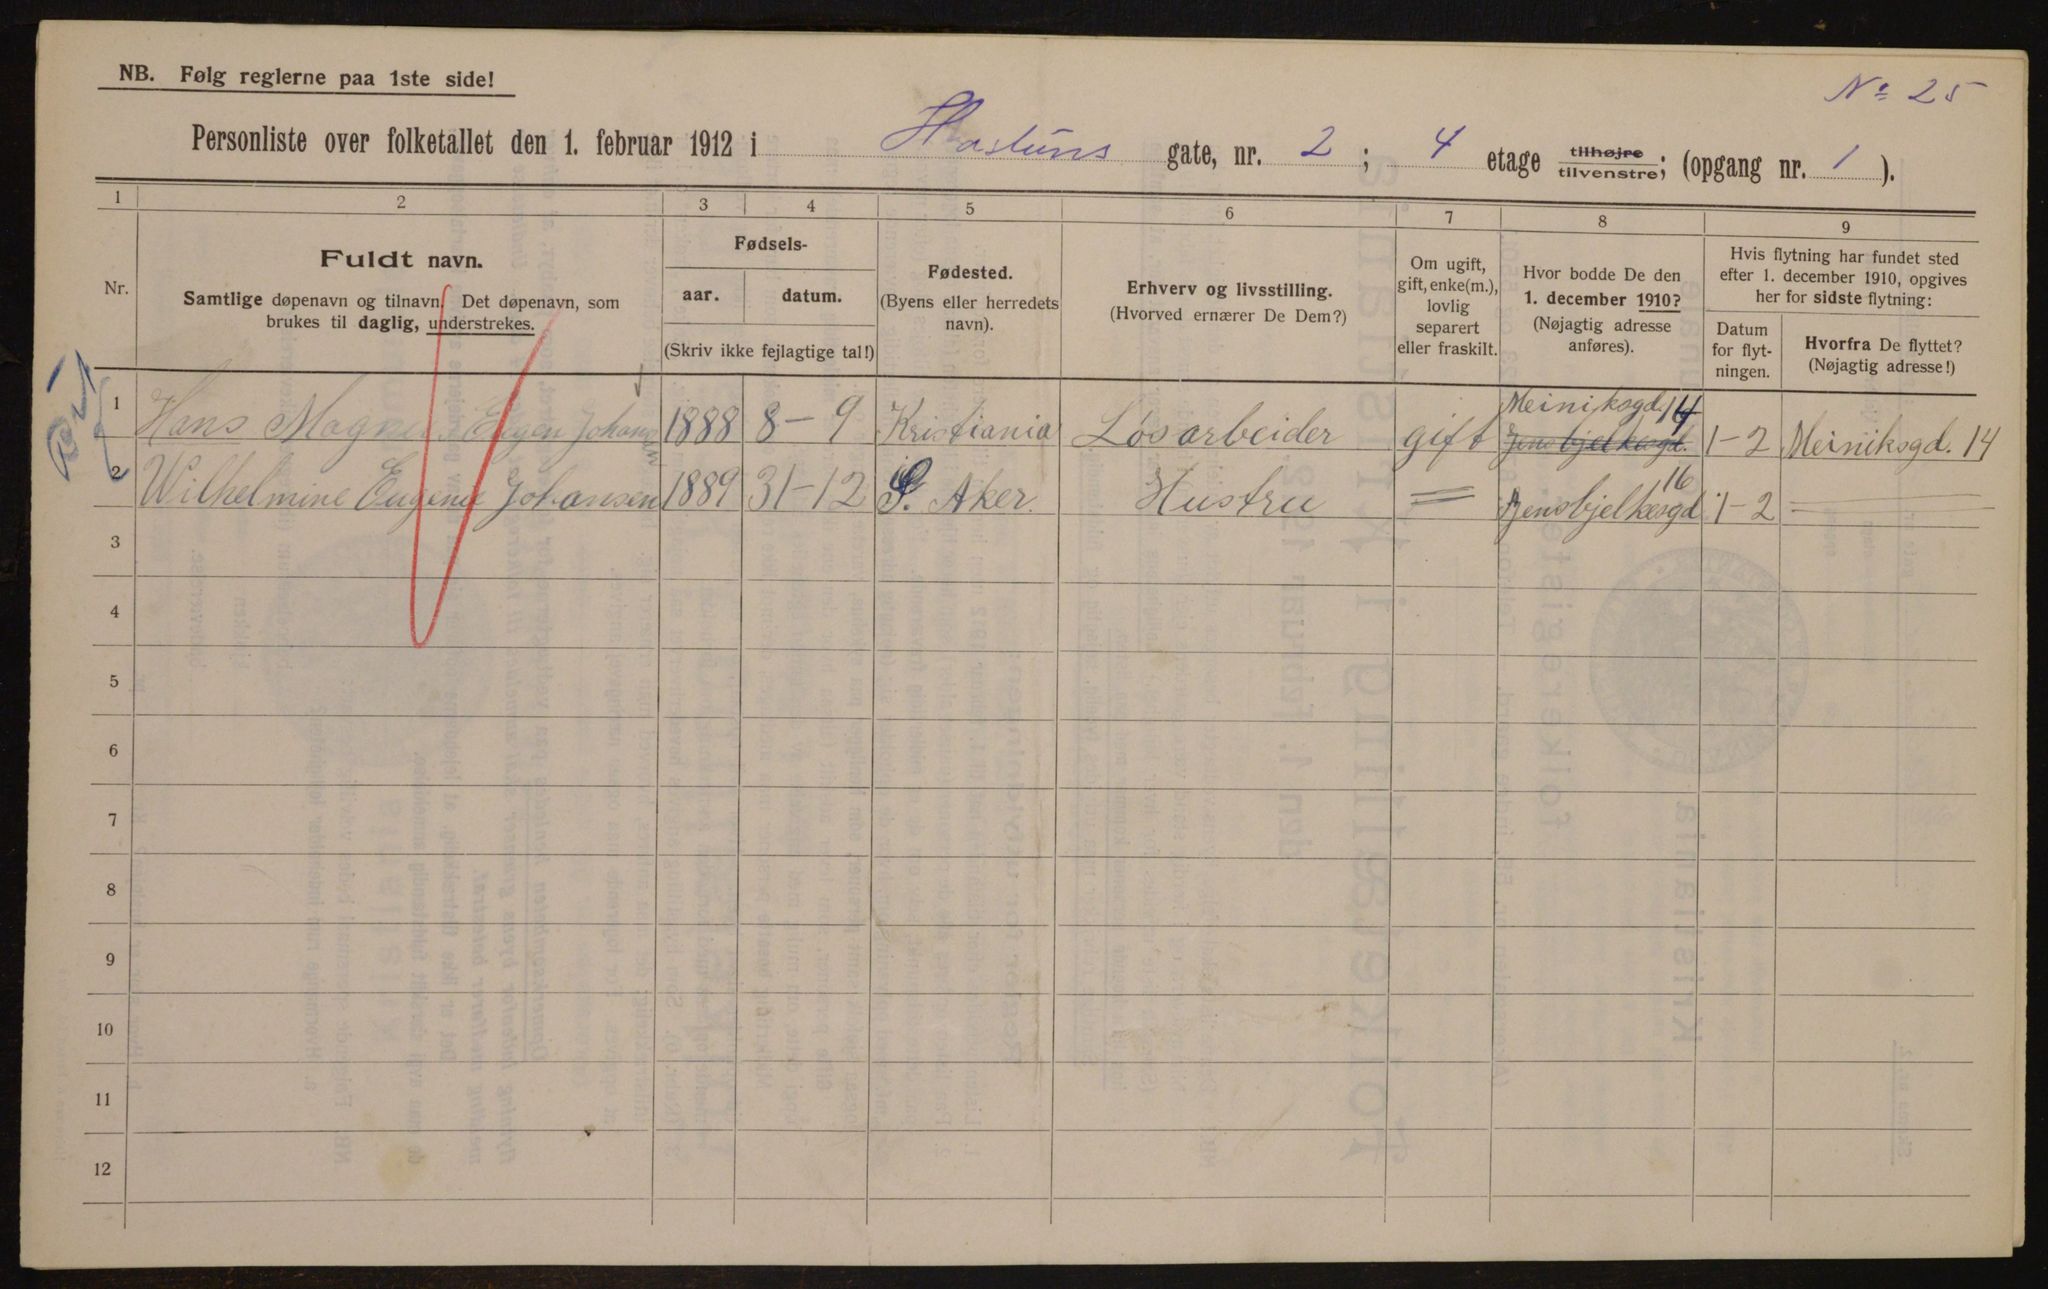 NB. Følg reglerne paa 1ste side!
No 25
Personliste over folketallet den 1. februar 1912 i Hasluns gate, nr. 2 ; 4 etage tilhøjre tilvenstre; (opgang nr. 1 ).
1 2 3 4 5 6 7 8 9
Nr.
Fuldt navn.
Samtlige døpenavn og tilnavn. Det døpenavn, som
brukes til daglig, understrekes.
Fødsels-
aar. datum.
(Skriv ikke fejlagtige tal!)
Fødested.
(Byens eller herredets
navn).
Erhverv og livsstilling.
(Hvorved ernærer De Dem?)
Om ugift,
gift, enke(m.),
lovlig
separert
eller fraskilt.
Hvor bodde De den
1. december 1910?
(Nøjagtig adresse
anføres).
Hvis flytning har fundet sted
efter 1. december 1910, opgives
her for sidste flytning:
Datum
for flyt-
ningen.
Hvorfra De flyttet?
(Nøjagtig adresse!)
1 Hans Magnus Eugen Johansen 1888 8-9 Kristiania Løsarbeider gift Meiniksgd. 14 Jens bjelkesgd. 1-2 Meiniksgd. 14
2 Wilhelmine Eugenie Johansen 1889 31-12 Aker. Hustru = Jensbjelkesgd 16 1-2 =
3
4
5
6
7
8
9
10
11
12